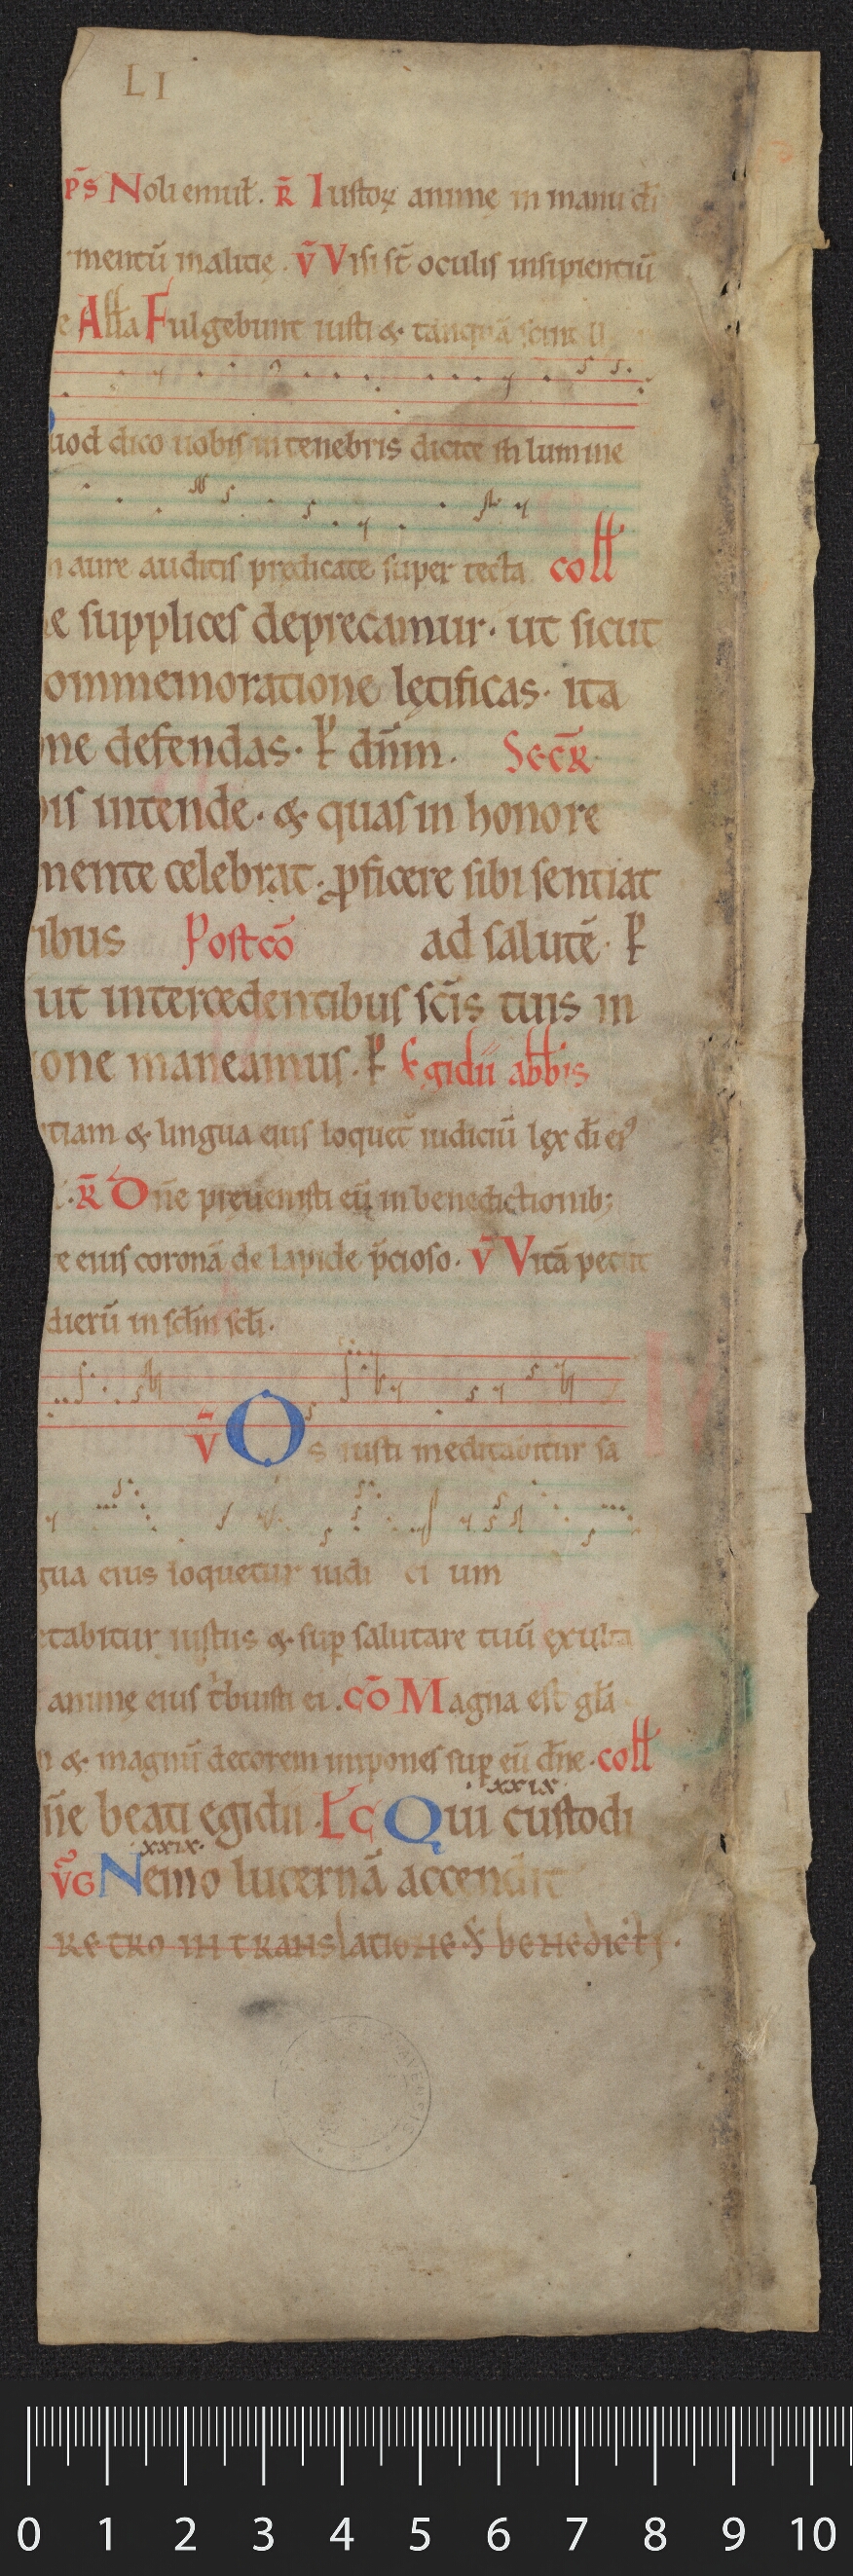 LI
p̄s Noli emul̄. R̄ Iustoꝝ animę in manu dī
mentū malitię. V̄ Visi st̄ oculis insipientiū
e Alla Fulgebunt iusti & tanquā scintill
uod dico uobis in tenebris dicite in lumine
n aure auditis predicate super tecta coll
e supplices deprecamur. ut sicut
ommemoratione lętificas. ita
ne defendas. P dn̄m. Secr̄
is intende. & quas in honore
mente celebrat. ꝓficere sibi sentiat
ibus Postcō ad salutē. P
ut intercedentibus sc̄is tuis in
one maneamus. P Egidii abb̄is
tiam & lingua eius loquet iudiciū lęx dī eiꝰ
R̄ Dn̄e preuenisti eū in benedictionib;
e eius coronā de lapide p̄cioso. V̄ Vitā petiit
dierū in scl̄m scl̄i.
V̄ Os iusti meditabitur sa
gua eius loquetur iudi ci um
tabitur iustus & suꝑ salutare tuū ęxulta
animę eius t̄buisti ei. Cō Magna est gl̄a
& magnū decorem impones suꝑ eū dn̄e. coll
xxix.
n̄e beati egidii. Lc̄ Qui custodi
xxix.
EVG Nemo lucernā accendit
Retro in translatione S benedicti.
0 1 2 3 4 5 6 7 8 9 10